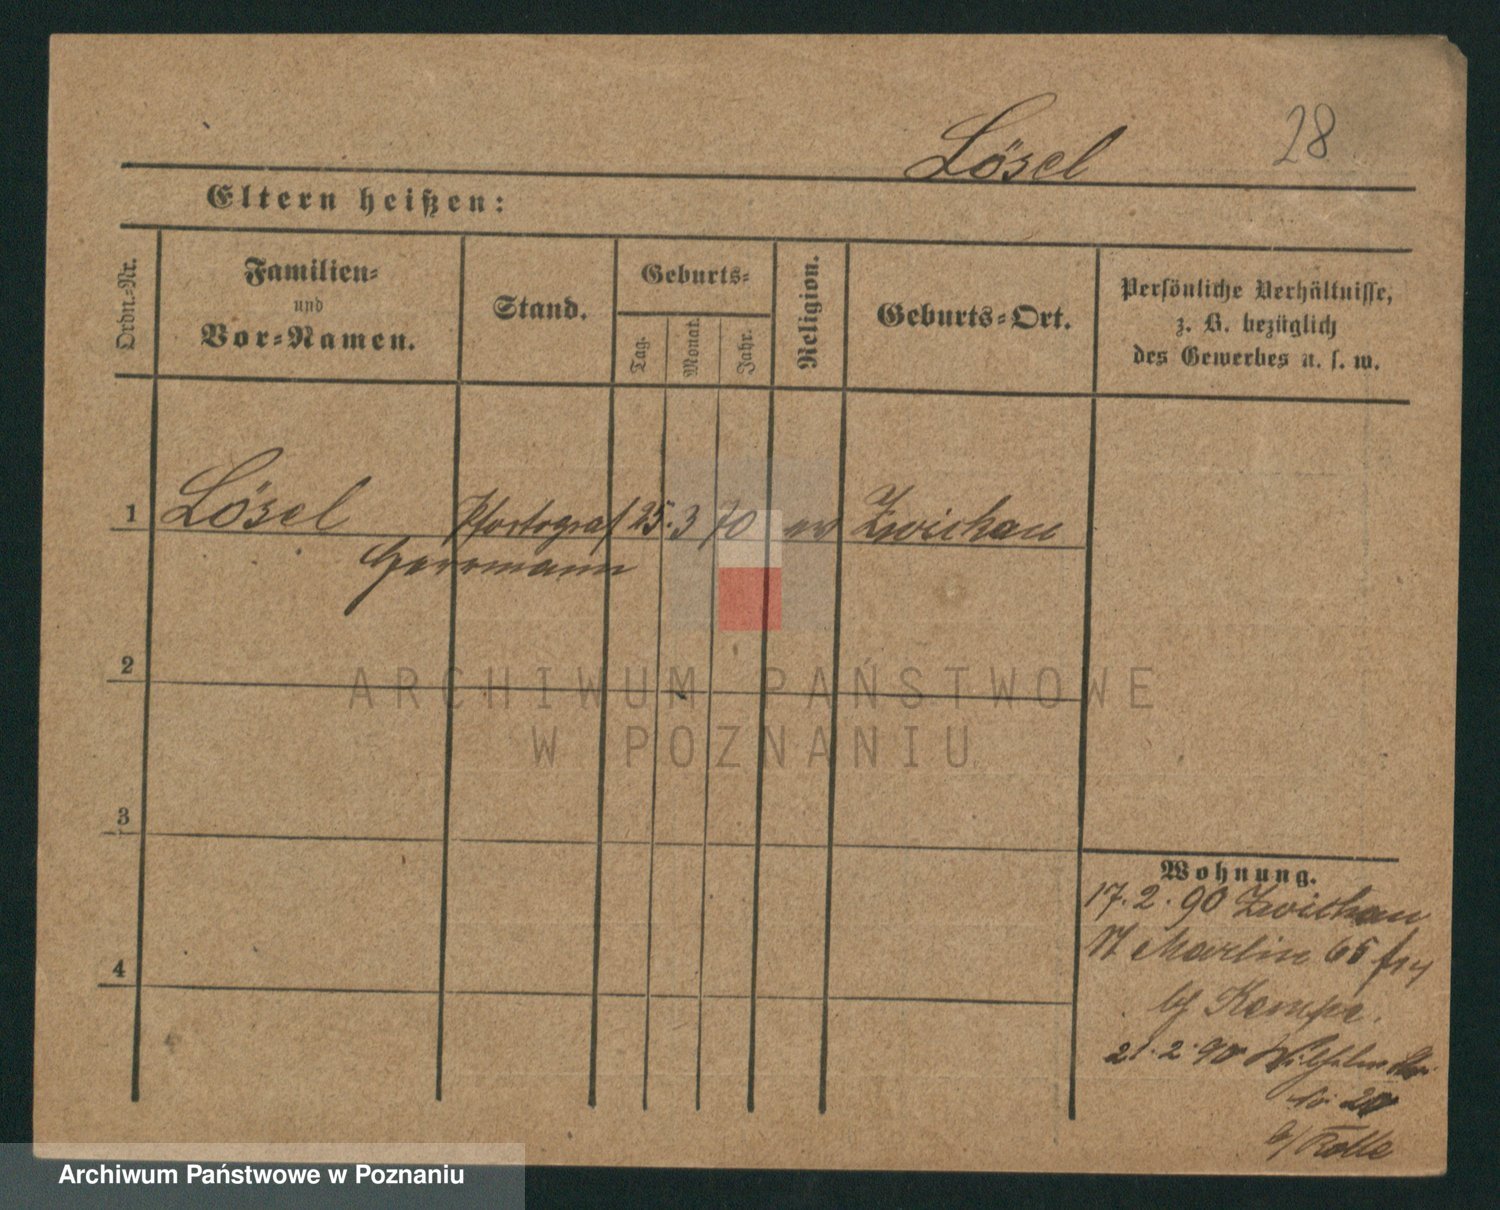 Lösel
28
Eltern heißen:
Ordn.-Nr.
Familien-
und
Vor-Namen.
Stand.
Geburts-
Tag.
Monat.
Jahr.
Religion.
Geburts-Ort.
Persönliche Verhältnisse,
z. B. bezüglich
des Gewerbes u. s. w.
1 Lösel Phortograf 25. 3 70 ev Zwickau
Herrmann
2
3
4
Wohnung.
17. 2. 90 Zwickau
St Martin 65
bj Kempe.
21. 2. 90 Wilhelm
20
b/ Rolle
ARCHIWUM PAŃSTWOWE
W POZNANIU
Archiwum Państwowe w Poznaniu